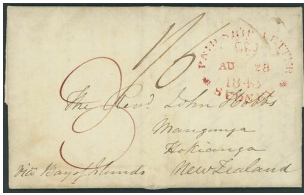 PAID SHIP LETTER
AU 28
1843
SYDNEY
1/6
3
The Revd. John Hobbs
Mangunga
Hokianga
New Zealand
via Bay of Islands